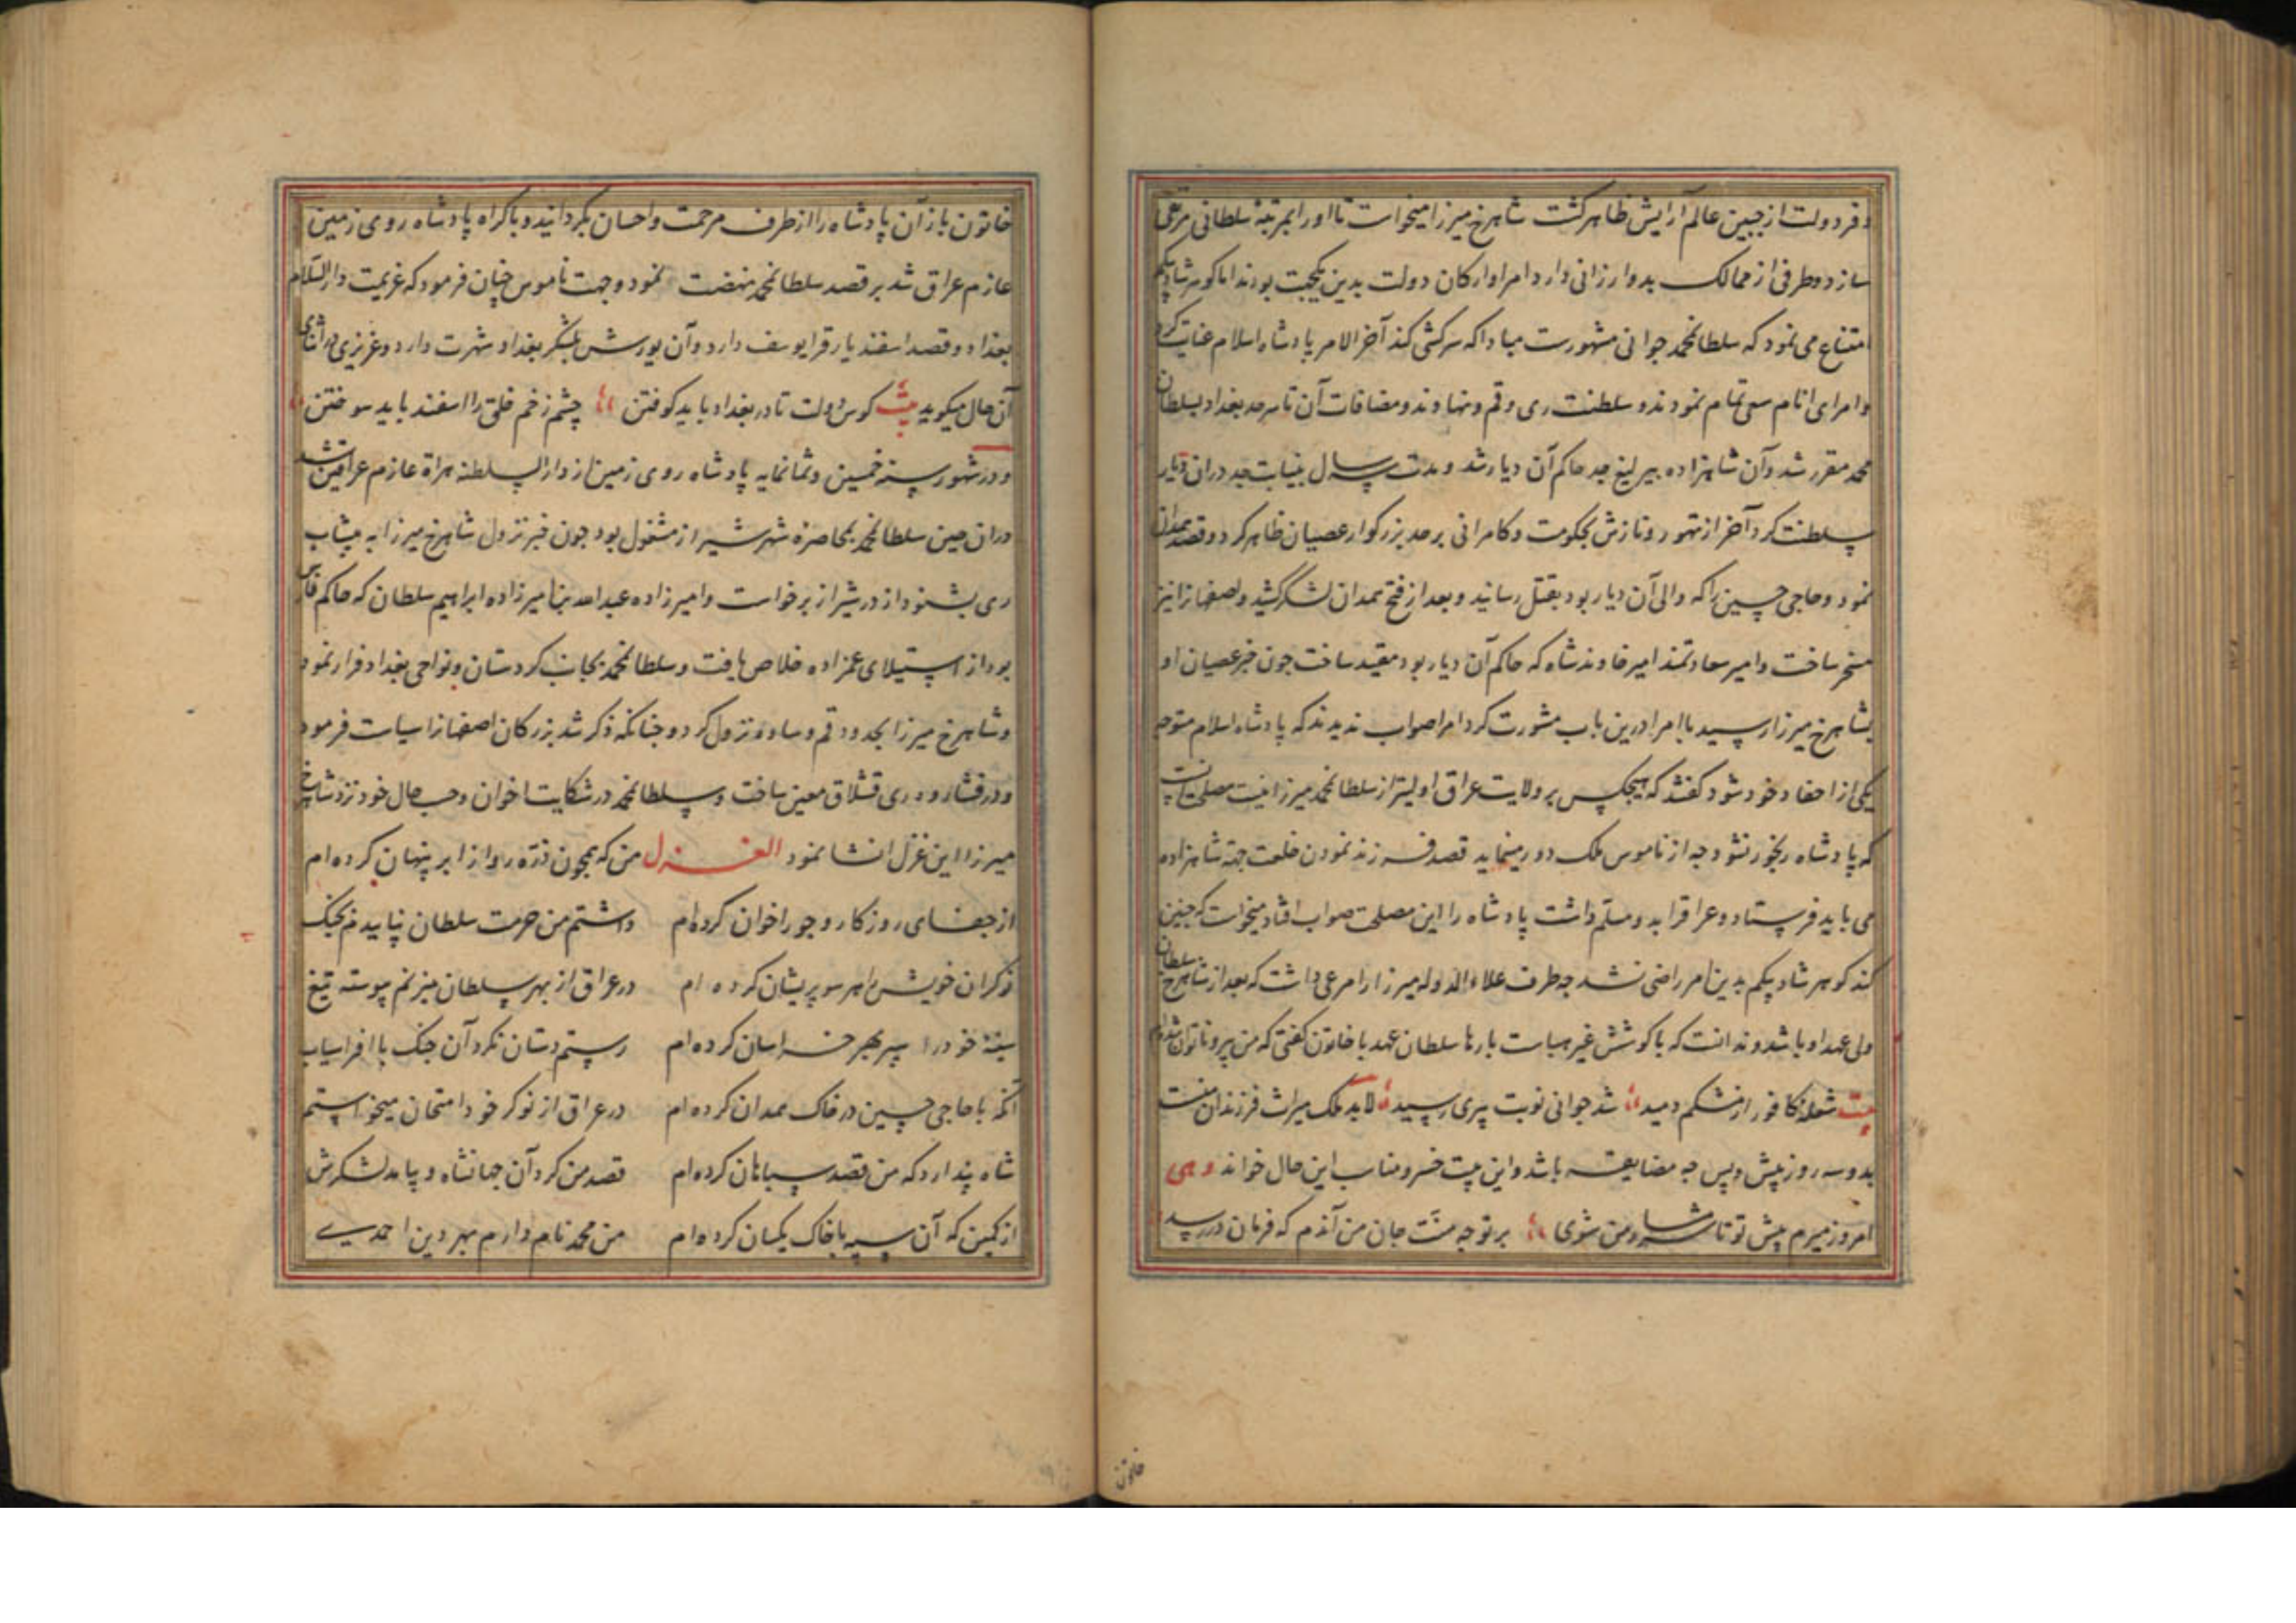 و فر دولت از جبین عالم آرایش ظاهر کشت شاهرخ میرزا میخواست تا او را بمرتبهٔ سلطانی مرعی
سازد و طرفی از ممالک بدو ارزانی دارد امرا و ارکان دولت بدین یکجهت بودند اما کوهرشاد بیکم
امتناع می نمود که سلطانمحمد جوانی متهورست مبادا که سرکشی کند آخر الامر پادشاه اسلام عنایت کرد
و امرای انام سعی تمام نمودند و سلطنت ری و قم و نهاوند و مضافات آن تا سرحد بغداد بسلطان
محمد مقرر شد و آن شاهزاده بیرلیغ جد حاکم آن دیار شد و مدت سه سال بنیابت جد در آن دیار
سلطنت کرد آخر از تهور و نازش بحکومت و کامرانی بر جد بزرکوار عصیان ظاهر کرد و قصد همدان
نمود و حاجی حسین را که والی آن دیار بود بقتل رسانید و بعد از فتح همدان لشکر کشید و اصفهانرا نیز
مسخر ساخت و امیر سعادتمند امیر خاوندشاه که حاکم آن دیار بود مقید ساخت جون خبر عصیان او
بشاهرخ میرزا رسید با امرا درین باب مشورت کرد امرا صواب ندیدند که پادشاه اسلام متوجه
یکی از احفاد خود شود کفتند که هیجکس بر ولایت عراق اولیتر از سلطانمحمد میرزا نیست مصلحت آنست
که پادشاه رنجور نشود جه از ناموس ملک دور مینماید قصد فرزند نمودن خلعت جهة شاهزاده
می باید فرستاد و عراق را بدو مسلم داشت پادشاه را این مصلحت صواب افتاد میخواست که جنین
کند کوهرشاد بیکم بدین امر راضی نشد جه طرف علاء الدوله میرزا را مرعی داشت که بعد از شاهرخ سلطان
ولی عهد او باشد و ندانست که با کوشش غیر هباست بارها سلطان عهد با خاتون کفتی که من پیر و ناتوان شده ام
بیت شعلهٔ کافور از مشکم دمید شد جوانی نوبت پیری رسید لابد ملک میراث فرزندان منست
بدو سه روز پیش و پس جه مضایقه باشد و این بیت خسرو مناسب این حال خواند و هی
امروز میرم پیش تو تا شرمسار من شوی بر تو جه منّت جان من آندم که فرمان در رسید
خاتون
خاتون باز آن پادشاه را از طرف مرحمت و احسان بکردانید و باکراه پادشاه روی زمین
عازم عراق شد بر قصد سلطانمحمد نهضت نمود و جهت ناموس جنان فرمود که عزیمت دار السّلام
بغداد و قصد اسفندیار قرا یوسف دارد و آن یورش بلشکر بغداد شهرت دارد و عزیزی در اثنای
آن حال میکوید بیت کوس دولت تا در بغداد باید کوفتن چشم زخم خلق را اسفند باید سوختن
و در شهور سنه خمسین و ثمانمایه پادشاه روی زمین از دار السلطنه هراة عازم عراقین شد
در ان حین سلطانمحمد بمحاصرهٔ شهر شیراز مشغول بود جون خبر نزول شاهرخ میرزا به
ری بشنود از در شیراز برخواست و امیرزاده عبدالله بن امیرزاده ابراهیم سلطان که حاکم فارس
بود از استیلای عمزاده خلاص یافت و سلطانمحمد بجانب کردستان و نواحی بغداد فرار نمود
و شاهرخ میرزا بحدود قم و ساوه نزول کرد و جنانکه ذکر شد بزرکان اصفهانرا سیاست فرمود
و در فشارود ری قشلاق معین ساخت و سلطانمحمد در شکایت اخوان و حسب حال خود نزد شاهرخ
میرزا این غزل انشا نمود الغزل من که همجون ذرّه رو از ابر پنهان کرده ام
از جفای روزکار و جور اخوان کرده ام داشتم من حرمت سلطان نیایدم بجنک
نوکران خویش را هر سو پریشان کرده ام در عراق از بهر سلطان میزنم پیوسته تیغ
سینهٔ خود را سپر بهر خراسان کرده ام رستم دستان نکرد آن جنک با افراسیاب
آنکه با حاجی حسین در خاک همدان کرده ام در عراق از نوکر خود امتحان میخواستم
شاه پندارد که من قصد سپاهان کرده ام قصد من کرد آن جهانشاه و بیامد لشکرش
از کمین که آن سپه با خاک یکسان کرده ام من محمد نام دارم مهر دین احمدی